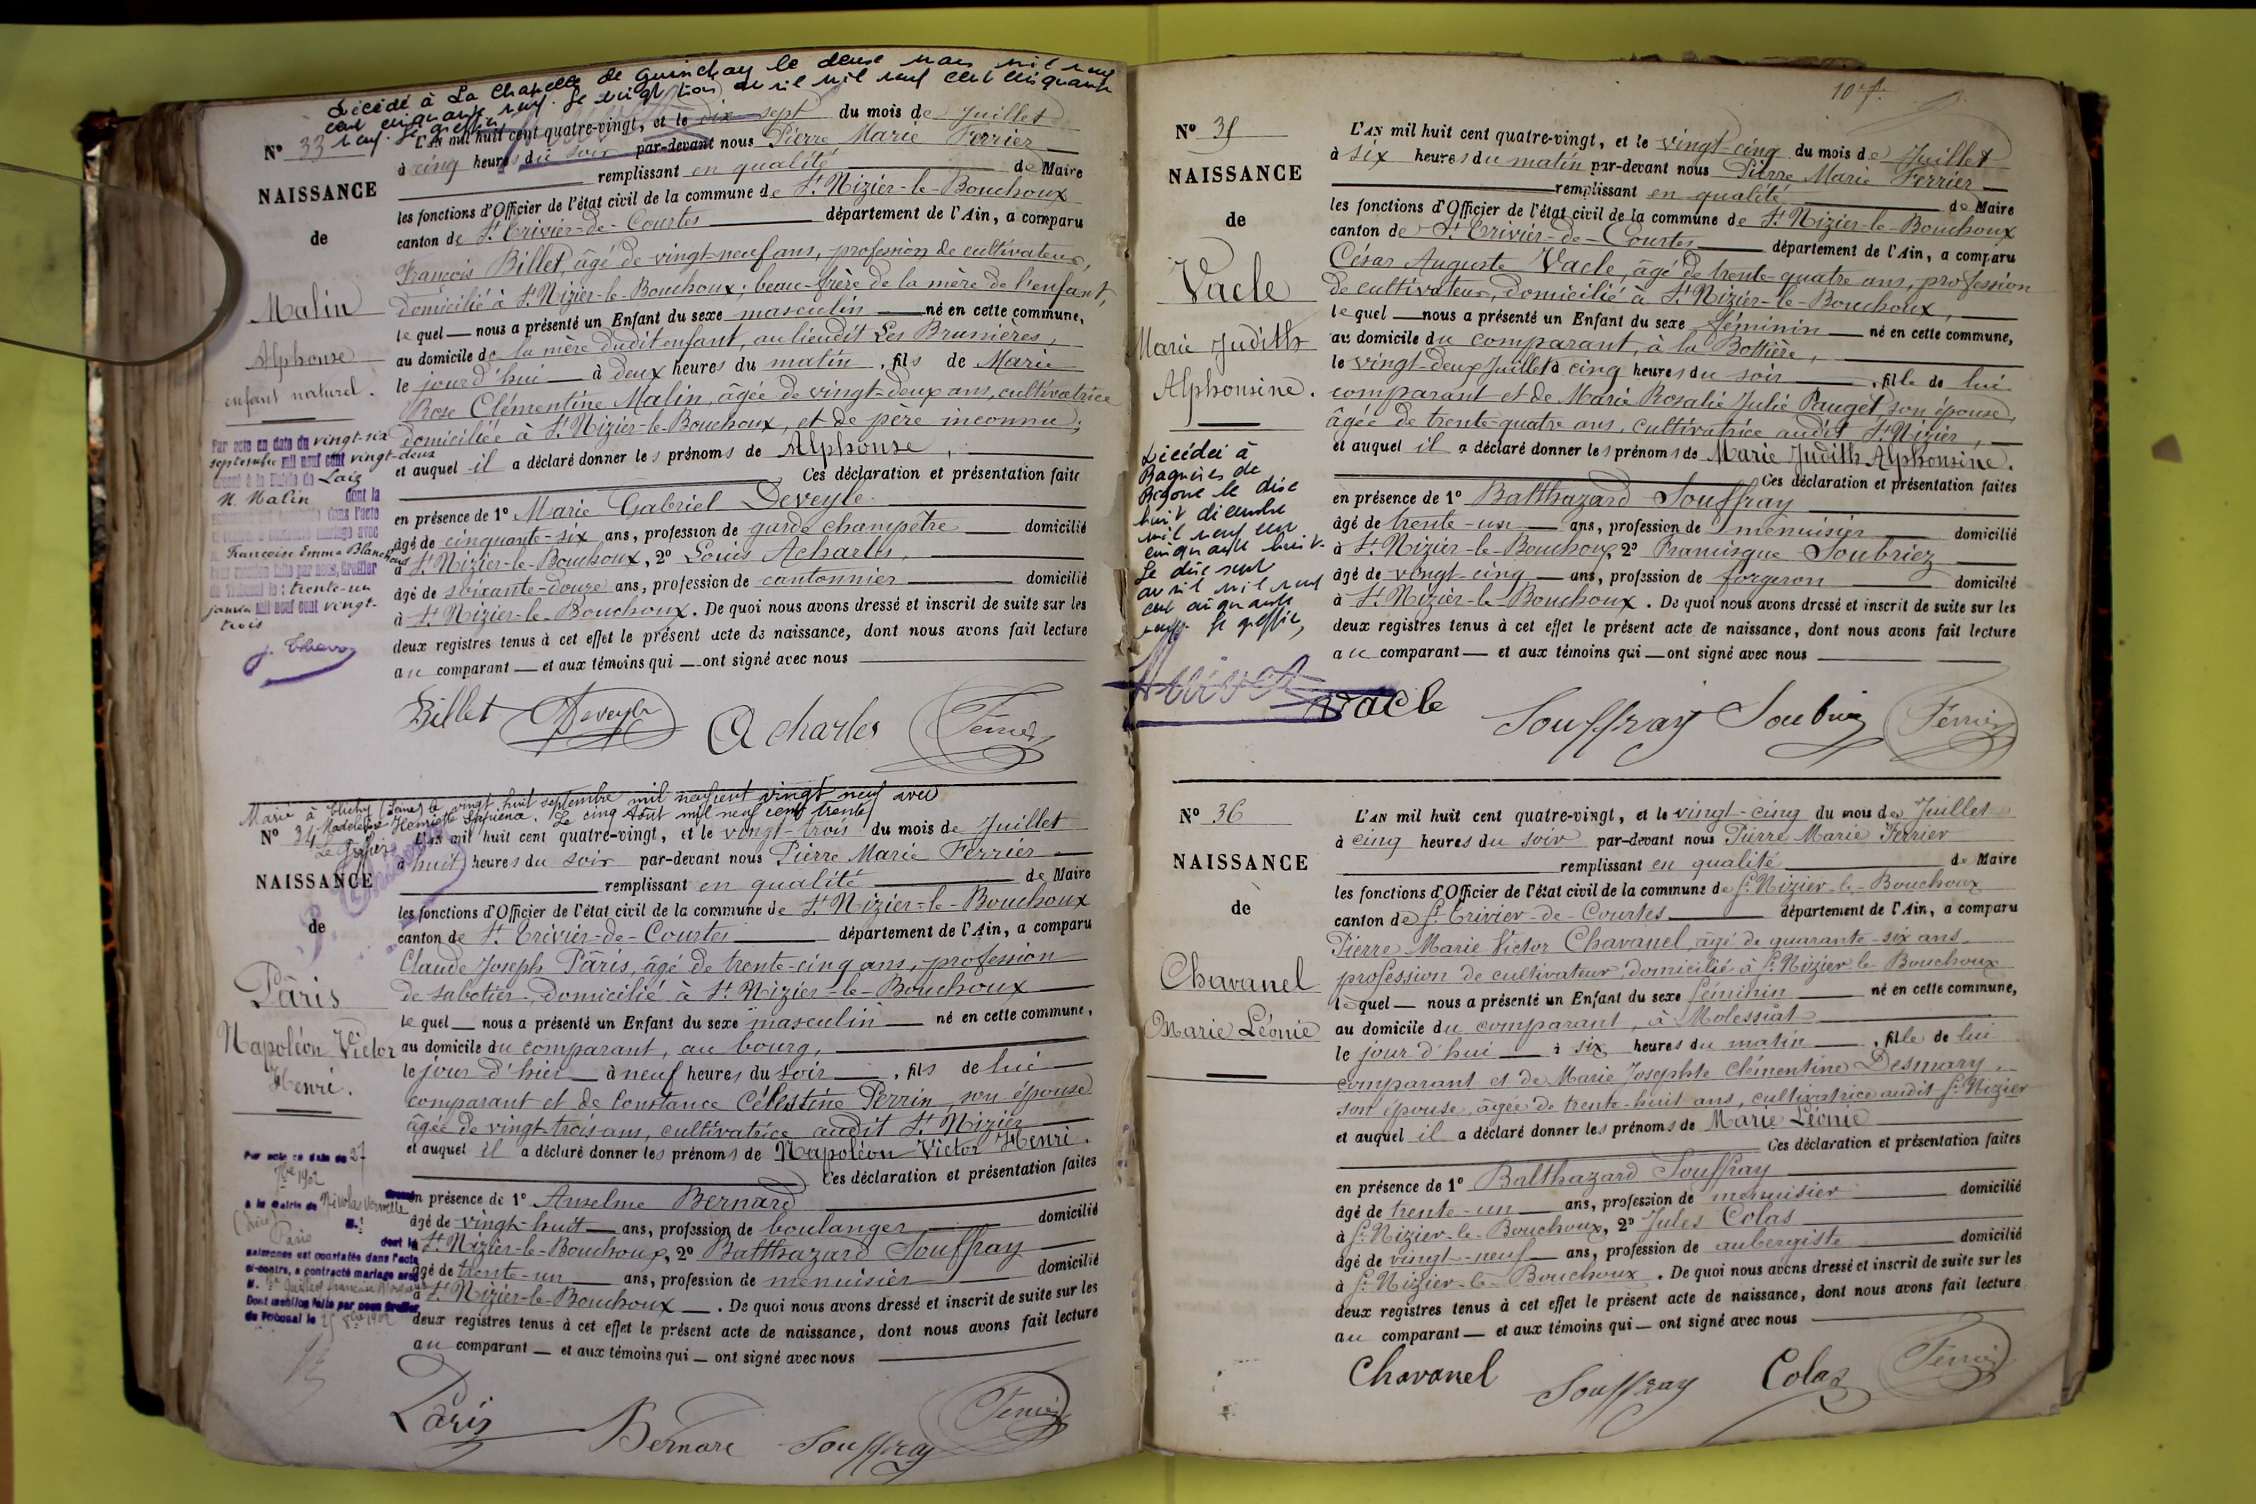 Décédé à La Chapelle de Guinchay le deux mars mil neuf
cent cinquante neuf. Le vingt trois avril mil neuf cent cinquante
neuf. Le greffier,
N° 33
NAISSANCE
de
Malin
Alphonse
enfant naturel.
Par acte en date du vingt-six
septembre mil neuf cent vingt-deux
dressé à la Mairie de Laiz
M. Malin dont la
dans l'acte
mariage avec
Françoise Emma Blanchard
mention faite par nous, Greffier
du Tribunal le trente-un
janvier mil neuf cent vingt-
trois
L'AN mil huit cent quatre-vingt, et le dix-sept du mois de Juillet
à cinq heures du soir par-devant nous Pierre Marie Ferrier
remplissant en qualité de Maire
les fonctions d'Officier de l'état civil de la commune de St Nizier-le-Bouchoux
canton de St Trivier-de-Courtes département de l'Ain, a comparu
François Billet, âgé de vingt-neuf ans, profession de cultivateur,
domicilié à St Nizier-le-Bouchoux; beau-frère de la mère de l'enfant,
lequel nous a présenté un Enfant du sexe masculin né en cette commune,
au domicile de la mère dudit enfant, au lieudit Les Brunières,
le jour d'hui à deux heures du matin, fils de Marie
Rose Clémentine Malin, âgée de vingt-deux ans, cultivatrice
domiciliée à St Nizier-le-Bouchoux, et de père inconnu;
et auquel il a déclaré donner les prénoms de Alphonse,
Ces déclaration et présentation faite
en présence de 1° Marie Gabriel Deveyle
âgé de cinquante-six ans, profession de garde champêtre domicilié
à St Nizier-le-Bouchoux, 2° Louis Acharles,
âgé de soixante-douze ans, profession de cantonnier domicilié
à St Nizier-le-Bouchoux. De quoi nous avons dressé et inscrit de suite sur les
deux registres tenus à cet effet le présent acte de naissance, dont nous avons fait lecture
au comparant et aux témoins qui ont signé avec nous
Billet Deveyle Acharles Ferrier
Marié à Clichy (Seine) le vingt huit septembre mil neuf cent vingt neuf avec
Madeleine Henriette . Le cinq Août mil neuf cent trente
Le Greffier
N° 34
NAISSANCE
de
Pâris
Napoléon Victor
Henri.
Par acte en date du 27
7bre 1902
à la Mairie de
Pâris
dont la
naissance est constatée dans l'acte
ci-contre, a contracté mariage avec
Dont mention faite par nous Greffier
du Tribunal le 1902
L'AN mil huit cent quatre-vingt, et le vingt-trois du mois de Juillet
à huit heures du soir par-devant nous Pierre Marie Ferrier
remplissant en qualité de Maire
les fonctions d'Officier de l'état civil de la commune de St Nizier-le-Bouchoux
canton de St Trivier-de-Courtes département de l'Ain, a comparu
Claude Joseph Pâris, âgé de trente-cinq ans, profession
de sabotier, domicilié à St Nizier-le-Bouchoux
lequel nous a présenté un Enfant du sexe masculin né en cette commune,
au domicile du comparant, au bourg,
le jour d'hier à neuf heures du soir, fils de lui
comparant et de Constance Célestine Perrin, son épouse
âgée de vingt-trois ans, cultivatrice audit St Nizier
et auquel il a déclaré donner les prénoms de Napoléon Victor Henri.
Ces déclaration et présentation faites
en présence de 1° Anselme Bernard
âgé de vingt-huit ans, profession de boulanger, domicilié
à St Nizier-le-Bouchoux, 2° Balthazard Souffray
âgé de trente-un ans, profession de menuisier domicilié
à St Nizier-le-Bouchoux. De quoi nous avons dressé et inscrit de suite sur les
deux registres tenus à cet effet le présent acte de naissance, dont nous avons fait lecture
au comparant et aux témoins qui ont signé avec nous
Pâris Bernard Souffray Ferrier
N° 35
NAISSANCE
de
Vacle
Marie Judith
Alphonsine.
Décédée à
Bagnères de
Bigorre le dix
huit décembre
mil neuf cent
cinquante huit.
Le dix sept
avril mil neuf
cent cinquante
neuf. Le greffier,
L'AN mil huit cent quatre-vingt, et le vingt-cinq du mois de Juillet
à six heures du matin par-devant nous Pierre Marie Ferrier
remplissant en qualité de Maire
les fonctions d'Officier de l'état civil de la commune de St Nizier-le-Bouchoux
canton de St Trivier-de-Courtes département de l'Ain, a comparu
César Auguste Vacle, âgé de trente-quatre ans, profession
de cultivateur, domicilié à St Nizier-le-Bouchoux,
lequel nous a présenté un Enfant du sexe féminin né en cette commune,
au domicile du comparant, à la Bottière,
le vingt-deux Juillet à cinq heures du soir, fille de lui
comparant et de Marie Rosalie Julie Pauget, son épouse,
âgée de trente-quatre ans, cultivatrice audit St Nizier,
et auquel il a déclaré donner les prénoms de Marie Judith Alphonsine.
Ces déclaration et présentation faites
en présence de 1° Balthazard Souffray
âgé de trente-un ans, profession de menuisier domicilié
à St Nizier-le-Bouchoux, 2° Francisque Soubriez
âgé de vingt-cinq ans, profession de forgeron domicilié
à St Nizier-le-Bouchoux. De quoi nous avons dressé et inscrit de suite sur les
deux registres tenus à cet effet le présent acte de naissance, dont nous avons fait lecture
au comparant et aux témoins qui ont signé avec nous
Vacle Souffray Soubriez Ferrier
N° 36
NAISSANCE
de
Chavanel
Marie Léonie
L'AN mil huit cent quatre-vingt, et le vingt-cinq du mois de Juillet
à cinq heures du soir par-devant nous Pierre Marie Ferrier
remplissant en qualité de Maire
les fonctions d'Officier de l'état civil de la commune de St Nizier-le-Bouchoux
canton de St Trivier-de-Courtes département de l'Ain, a comparu
Pierre Marie Victor Chavanel, âgé de quarante-six ans
profession de cultivateur domicilié à St Nizier le Bouchoux
lequel nous a présenté un Enfant du sexe féminin né en cette commune,
au domicile du comparant, à Molessiat
le jour d'hui à six heures du matin, fille de lui
comparant et de Marie Josephte Clémentine Desmary,
son épouse, âgée de trente-huit ans, cultivatrice audit St Nizier
et auquel il a déclaré donner les prénoms de Marie Léonie
Ces déclaration et présentation faites
en présence de 1° Balthazard Souffray
âgé de trente-un ans, profession de menuisier domicilié
à St Nizier-le-Bouchoux, 2° Jules Colas
âgé de vingt-neuf ans, profession de aubergiste domicilié
à St Nizier-le-Bouchoux. De quoi nous avons dressé et inscrit de suite sur les
deux registres tenus à cet effet le présent acte de naissance, dont nous avons fait lecture
au comparant et aux témoins qui ont signé avec nous
Chavanel Souffray Colas Ferrier